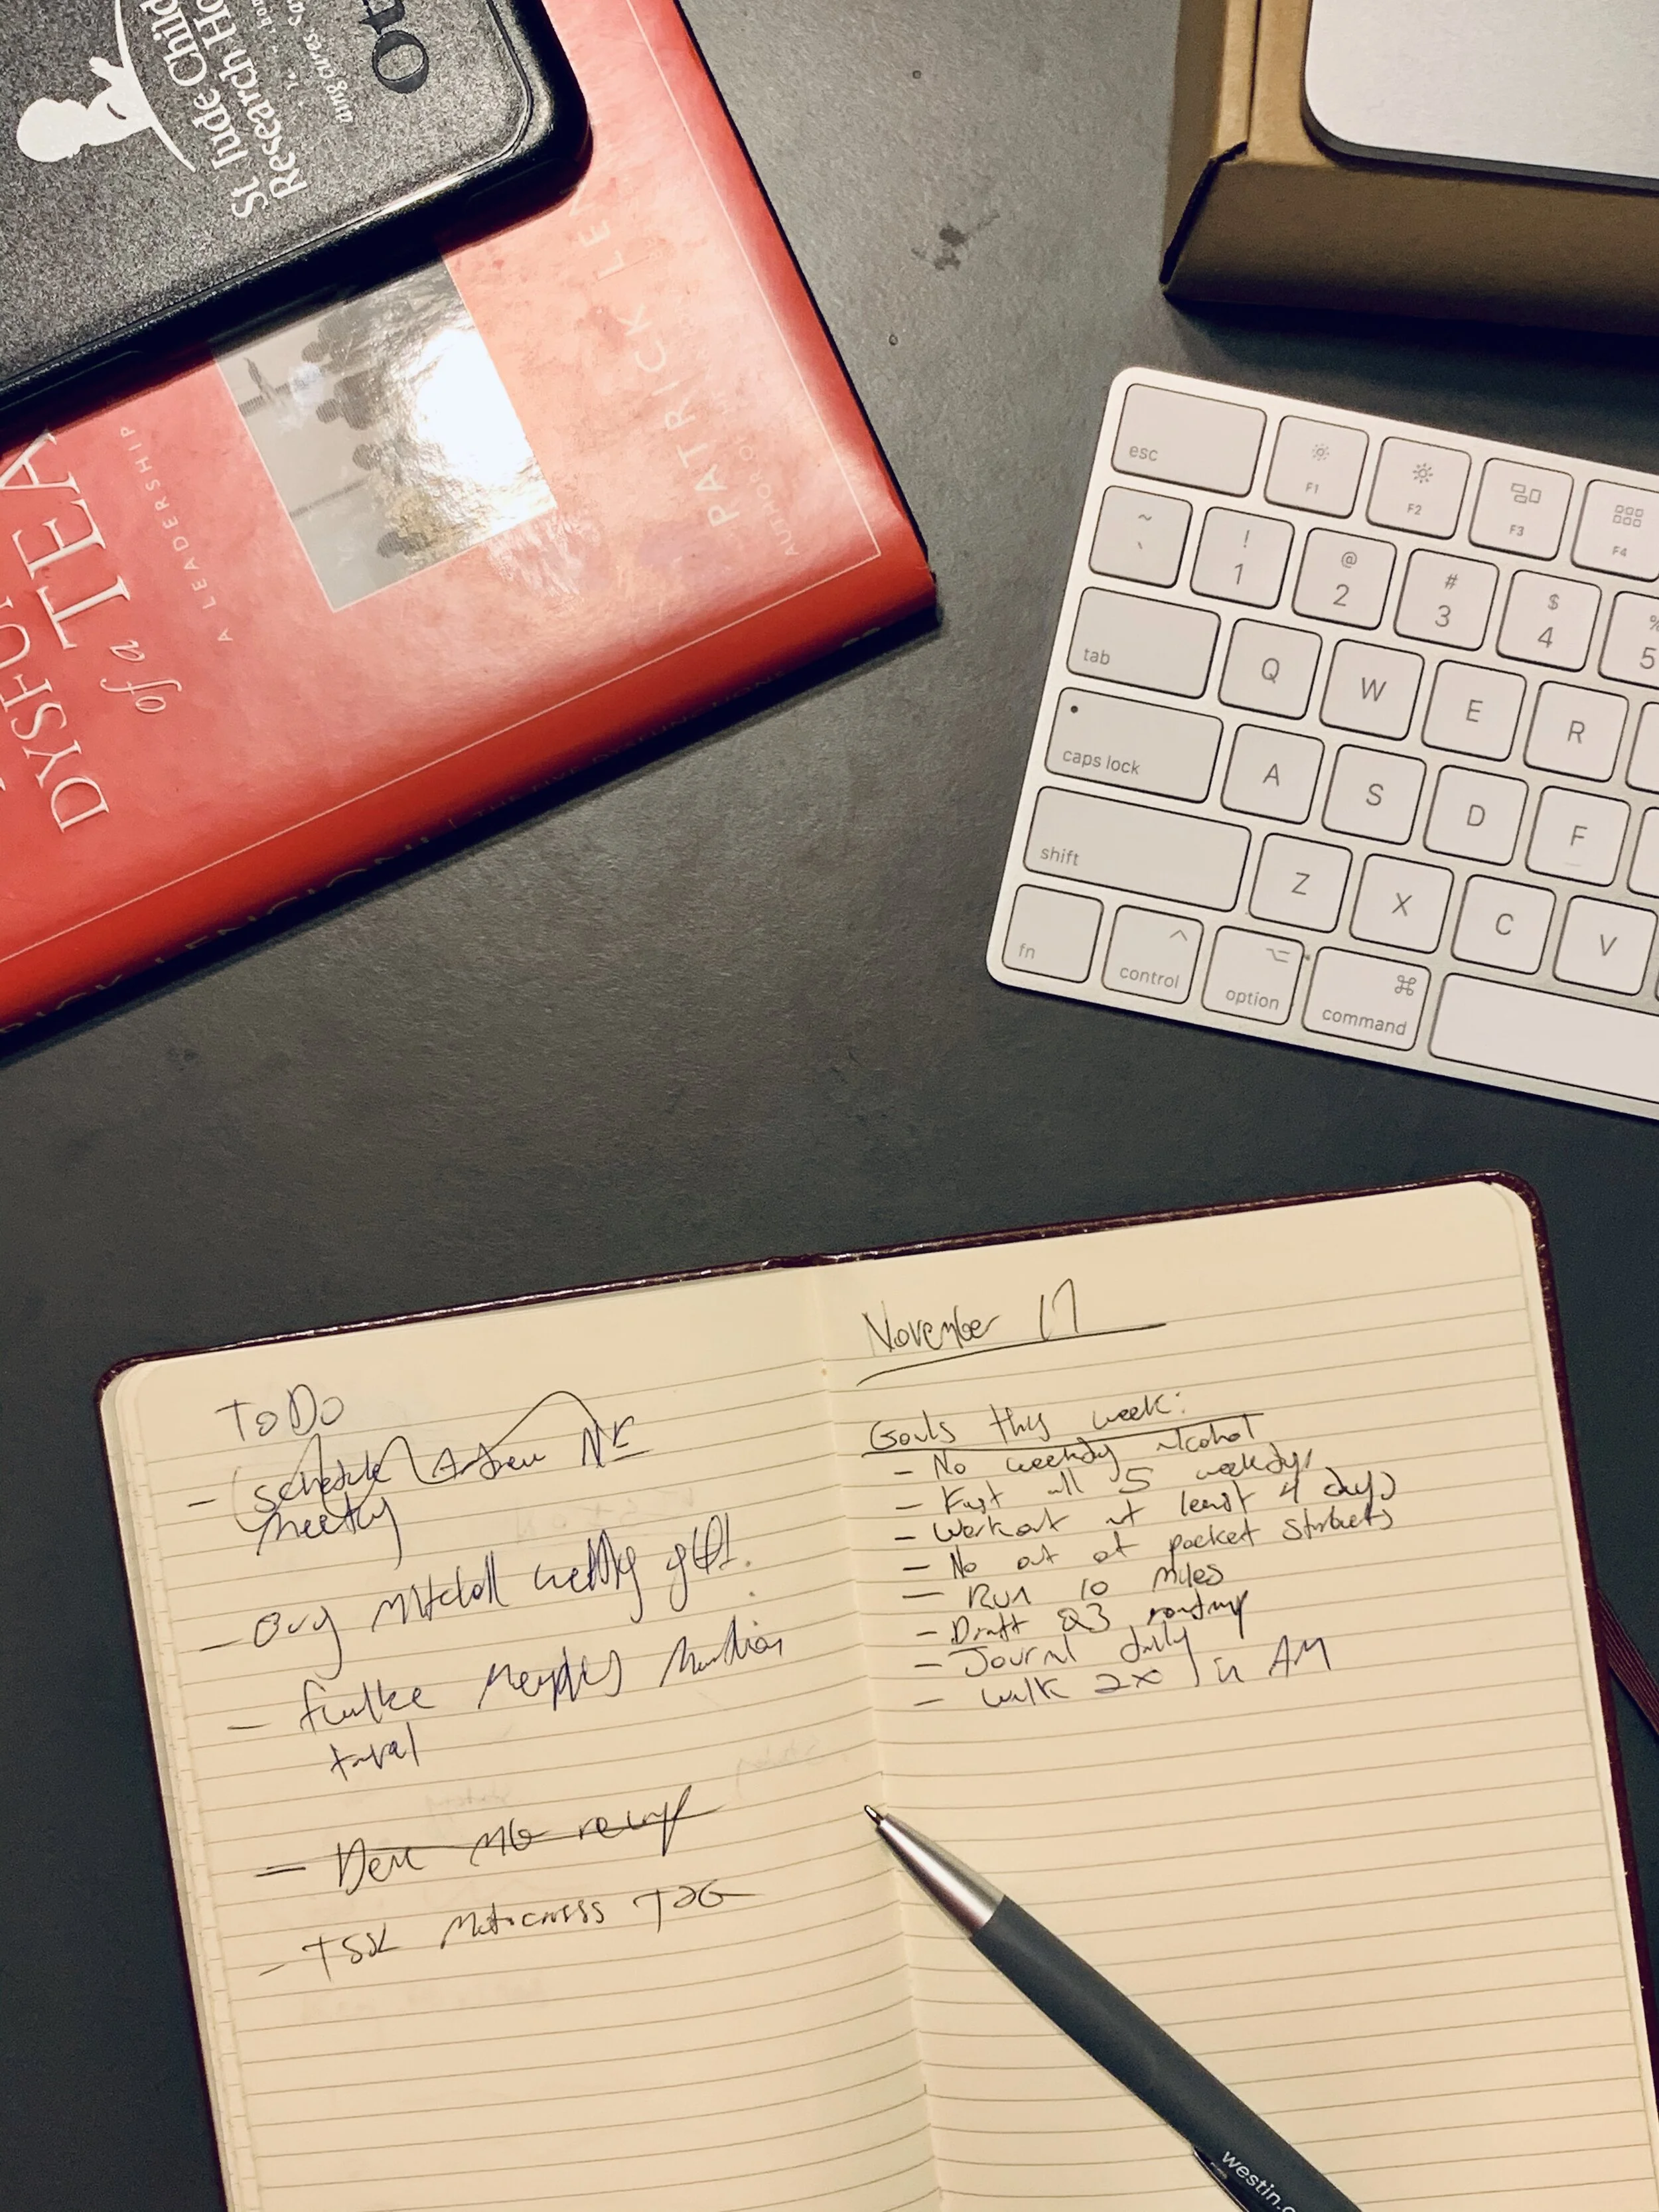 St Jude Child
Research Ho
Ot
DYSFU
of a TEA
A LEADERSHIP
PATRICK LEN
AUTHOR OF
esc
F1
F2
F3
F4
~ ! @ # $ %
` 1 2 3 4 5
tab Q W E R
caps lock A S D F
shift Z X C V
fn control option command
ToDo
- schedule Andrew
meeting
- Buy Mitchell wedding gift!
travel
- TSSK Motocross T2G
November 17
Goals this week:
- No weekday alcohol
- Fast all 5 weekdays
- Workout at least 4 days
- No out of pocket Starbucks
- Run 10 miles
- Draft Q3
- Journal daily
- Walk 2x in AM
westin.c